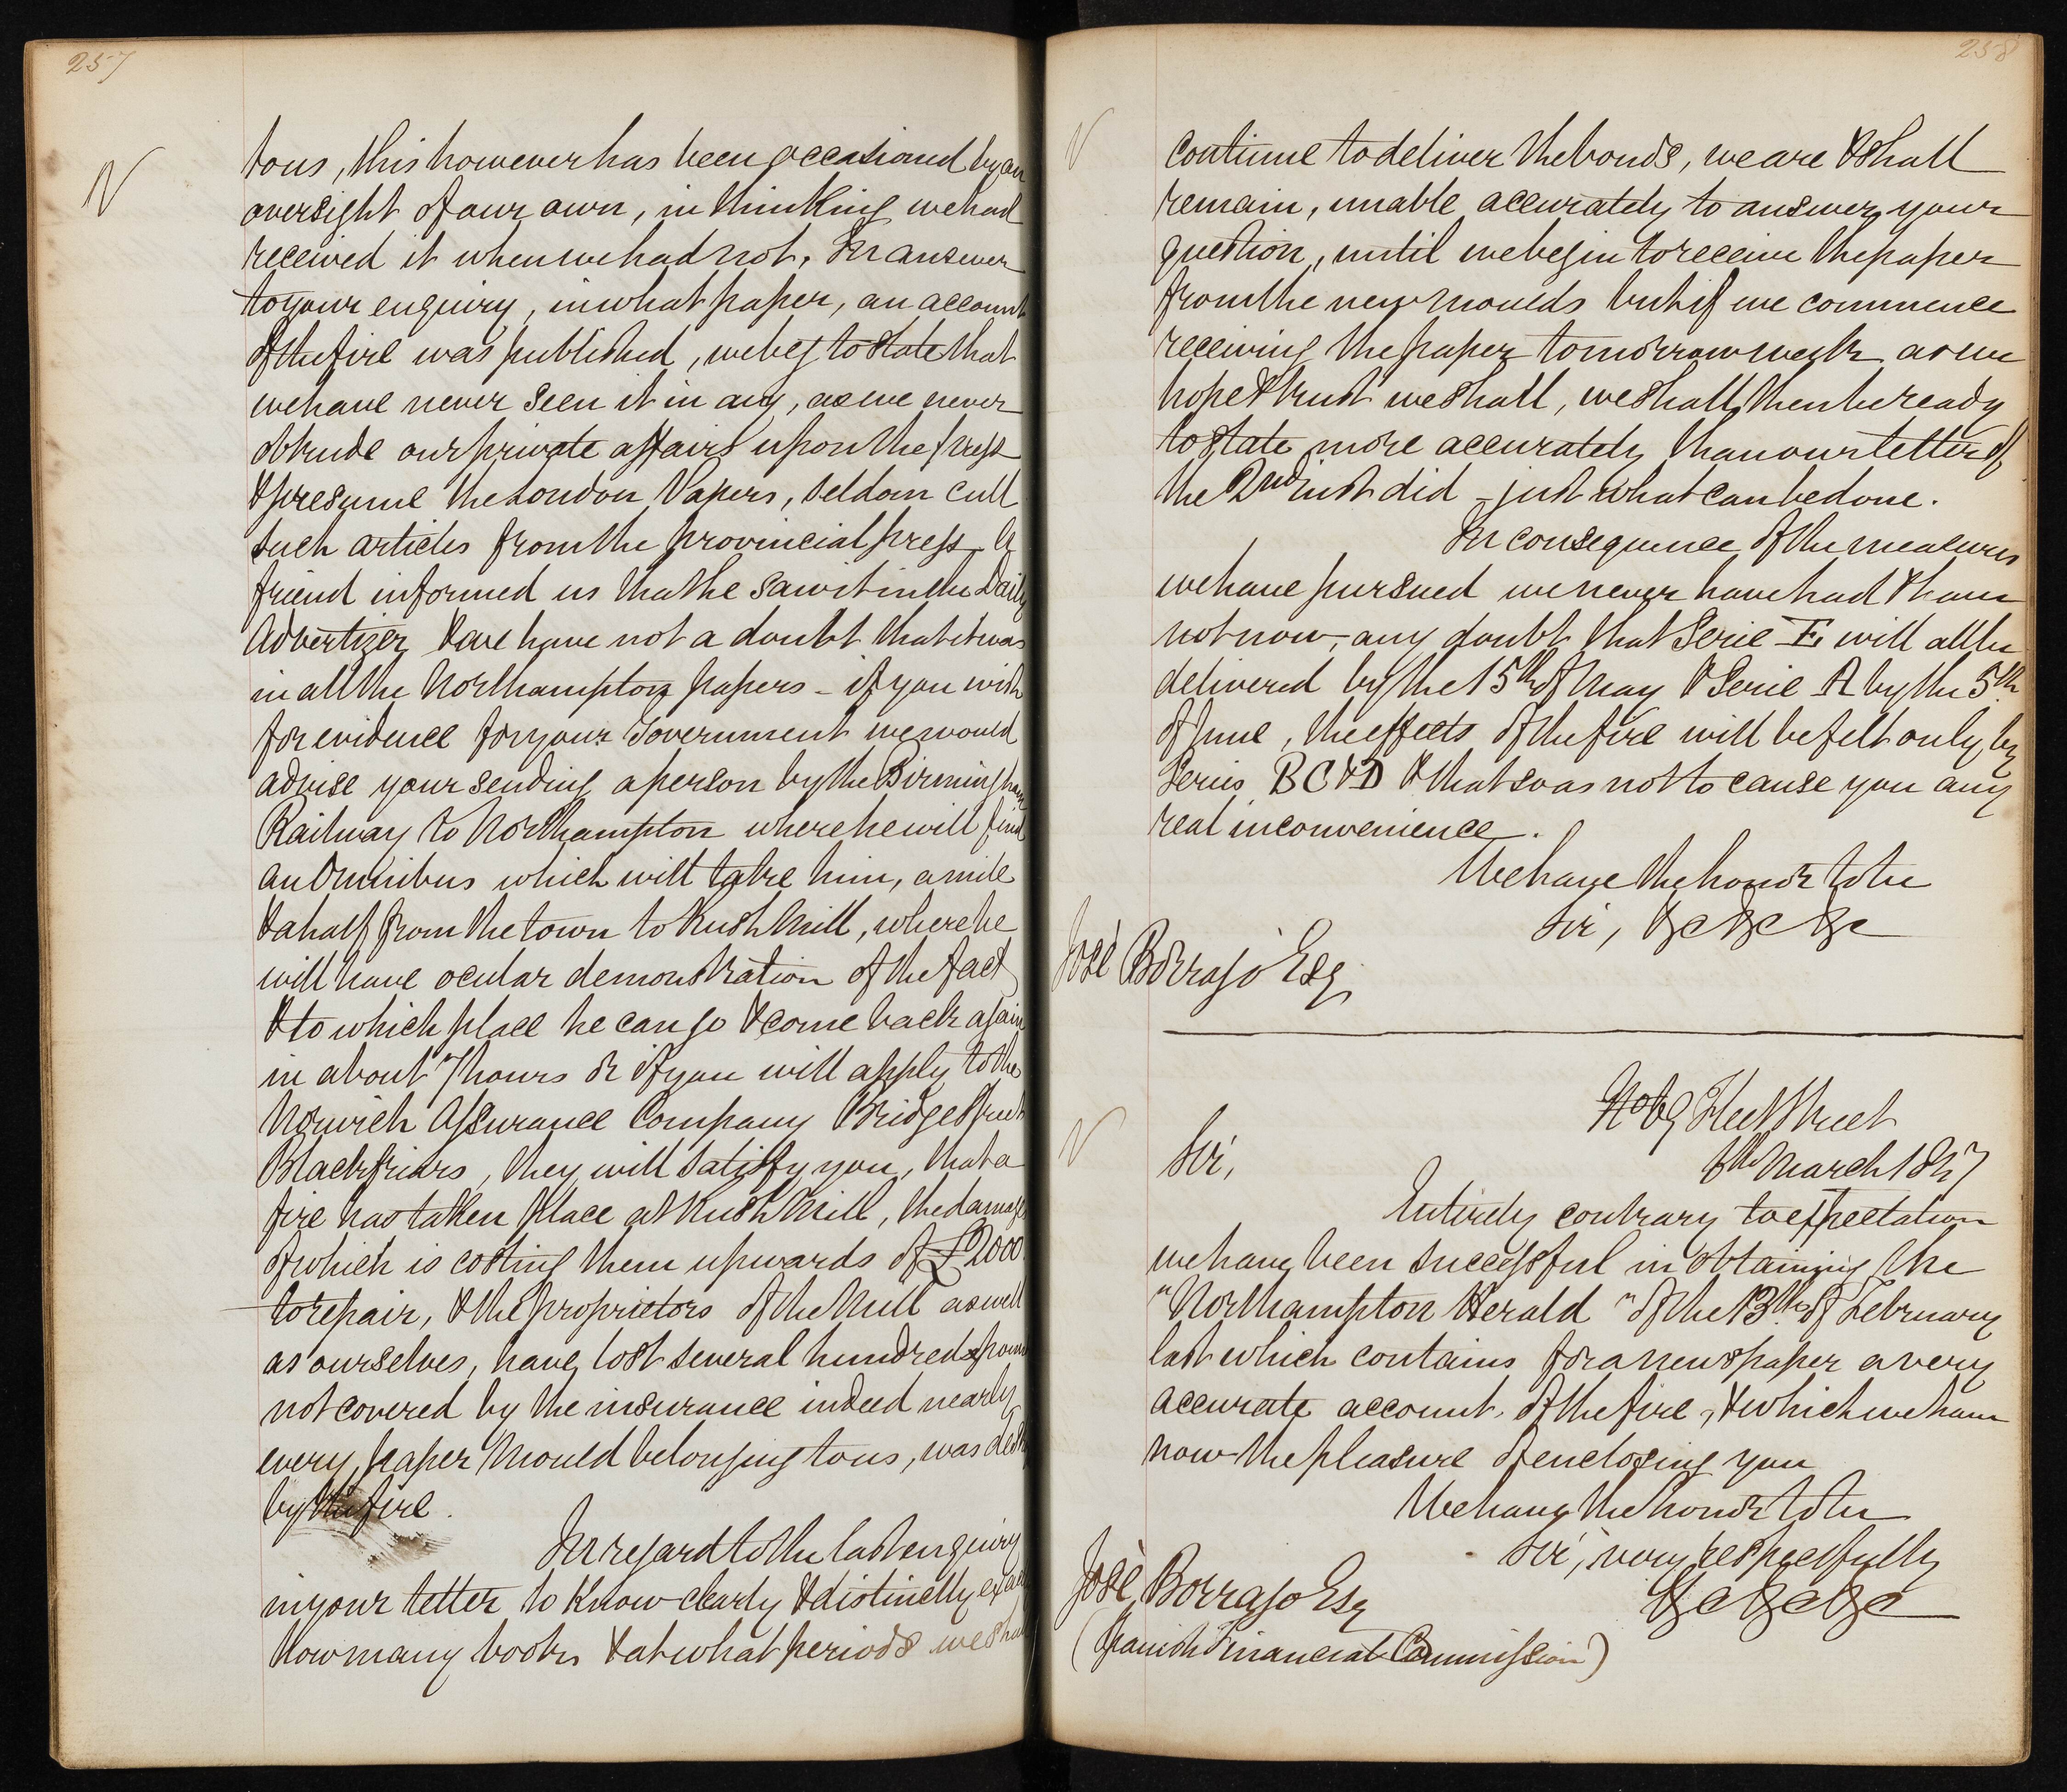 257
N
tous, this however has been occasioned by an
oversight of our own, in thinking we had
received it when we had not. In answer
to your enquiry, in what paper, an account
of the fire was published, we beg to state that
we have never seen it in any, as we never
obtrude our private affairs upon the press
& presume the London Papers, seldom cull
such articles from the provincial press. A
friend informed us that he saw it in the Daily
Advertizer & we have not a doubt that it was
in all the Northampton papers - if you wish
for evidence for your Government we would
advise your sending a person by the Birmingham
Railway to Northampton where he will find
an Omnibus which will take him, a mile
& a half from the town to Rush Mill, where he
will have ocular demonstration of the fact
& to which place he can go & come back again
in about 7 hours or if you will apply to the
Norwich Assurance Company Bridge Street
Blackfriars, they will satisfy you, that a
fire has taken place at Rush Mill, the damage
of which is costing them upwards of £2000
to repair, & the proprietors of the Mill as well
as ourselves, have lost several hundreds pounds
not covered by the insurance indeed nearly
every paper Mould belonging to us, was dest
by the fire.
In regard to the last enquiry
in your letter to know clearly & distinctly exactly
how many books & at what periods we shall
258
N
continue to deliver the bonds, we are & shall
remain, unable accurately to answer your
question, until we begin to receive the paper
from the new moulds but if we commence
receiving the paper tomorrow week as we
hope & trust we shall, we shall then be ready
to state more accurately than our letter of
the 2nd inst did - just what can be done.
In consequence of the measures
we have pursued we never have had & have
not now, any doubt that Serie E will all be
delivered by the 15th of May & Serie A by the 5th
of June, the effects of the fire will be felt only by
Series B C & D & that so as not to cause you any
real inconvenience.
We have the honor to be
Sir, &c &c &c
José Borrajo Esq
No 69 Fleet Street
N
Sir,
6th March 1847
Entirely contrary to expectation
we have been successful in obtaining the
"Northampton Herald" of the 13th of February
last which contains for a newspaper a very
accurate account of the fire, & which we have
now the pleasure of enclosing you
We have the honor to be
Sir, very respectfully
José Borrajo Esq
&c &c &c
(Spanish Financial Commission)